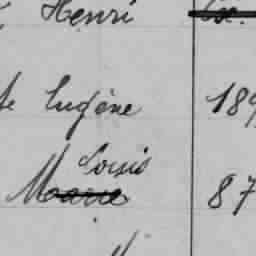 Henri
te Eugène 189
Louis
Marie 87